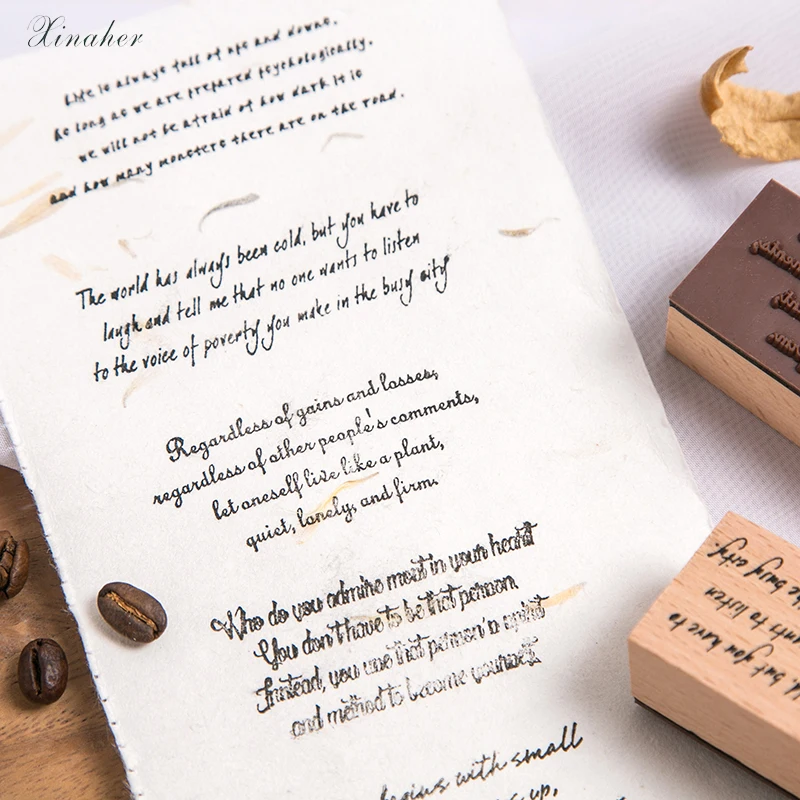 Xinaher
Life is always full of ups and downs.
As long as we are prepared psychologically.
we will not be afraid of how dark it is
and how many monsters there are on the road.
The world has always been cold, but you have to
laugh and tell me that no one wants to listen
to the voice of poverty you make in the busy city
Regardless of gains and losses,
regardless of other people's comments,
let oneself live like a plant,
quiet, lonely, and firm.
Who do you admire most in your heart
You don't have to be that person.
Instead, you use that person's spirit
and method to become yourself.
begins with small
up,
but you have to
nts to listen
busy city.